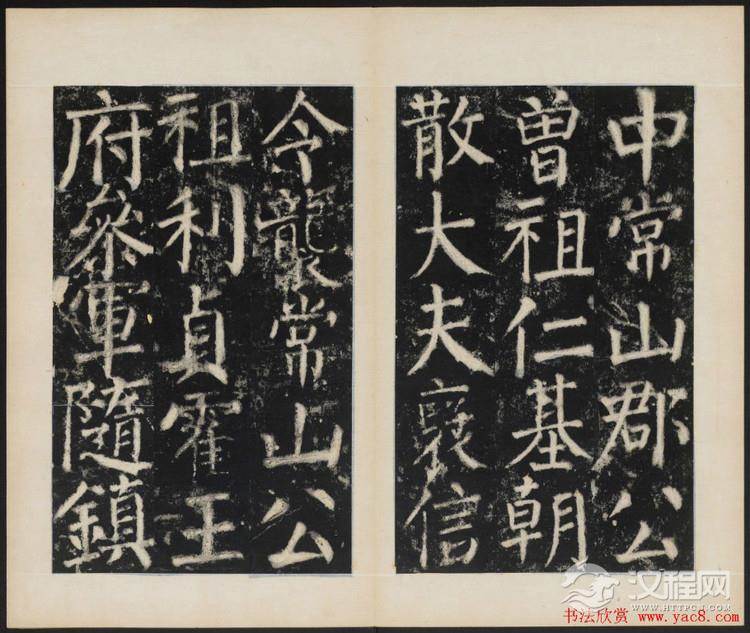 中常山郡公
曽祖仁基朝
散大夫襄信
令襲常山公
祖利貞霍王
府叅軍隨鎮
汉程网
WWW.HTTPCN.COM
书法欣赏 www.yac8.com